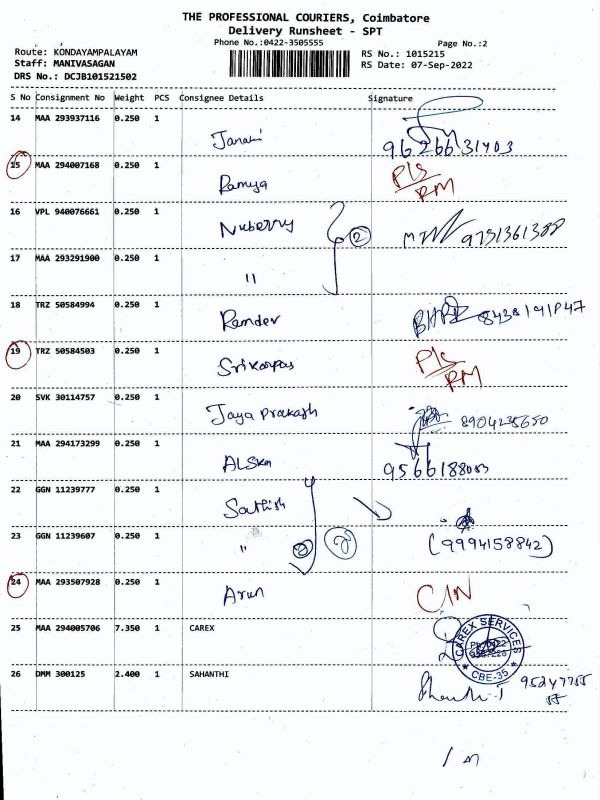 THE PROFESSIONAL COURIERS, Coimbatore
Delivery Runsheet - SPT
Phone No.:0422-3505555 Page No.:2
Route: KONDAYAMPALAYAM RS No.: 1015215
Staff: MANIVASAGAN RS Date: 07-Sep-2022
DRS No.: DCJB101521502
S No Consignment No Weight PCS Consignee Details Signature
14 MAA 293937116 0.250 1
Janani 9626631403
15 MAA 294007168 0.250 1
Ramya P/s RM
16 VPL 940076661 0.250 1
Nuberry 2 9751361388
17 MAA 293291900 0.250 1
"
18 TRZ 50584994 0.250 1
Ramdev
19 TRZ 50584503 0.250 1
P/s RM
20 SVK 30114757 0.250 1
Jaya Prakash 8904235650
21 MAA 294173299 0.250 1
9566188083
22 GGN 11239777 0.250 1
Sathish
23 GGN 11239607 0.250 1
" 2 (9994158842)
24 MAA 293507928 0.250 1
Arun C/N
25 MAA 294005706 7.350 1 CAREX
CAREX SERVICES
* CBE-35 *
26 DMM 300125 2.400 1 SAHANTHI